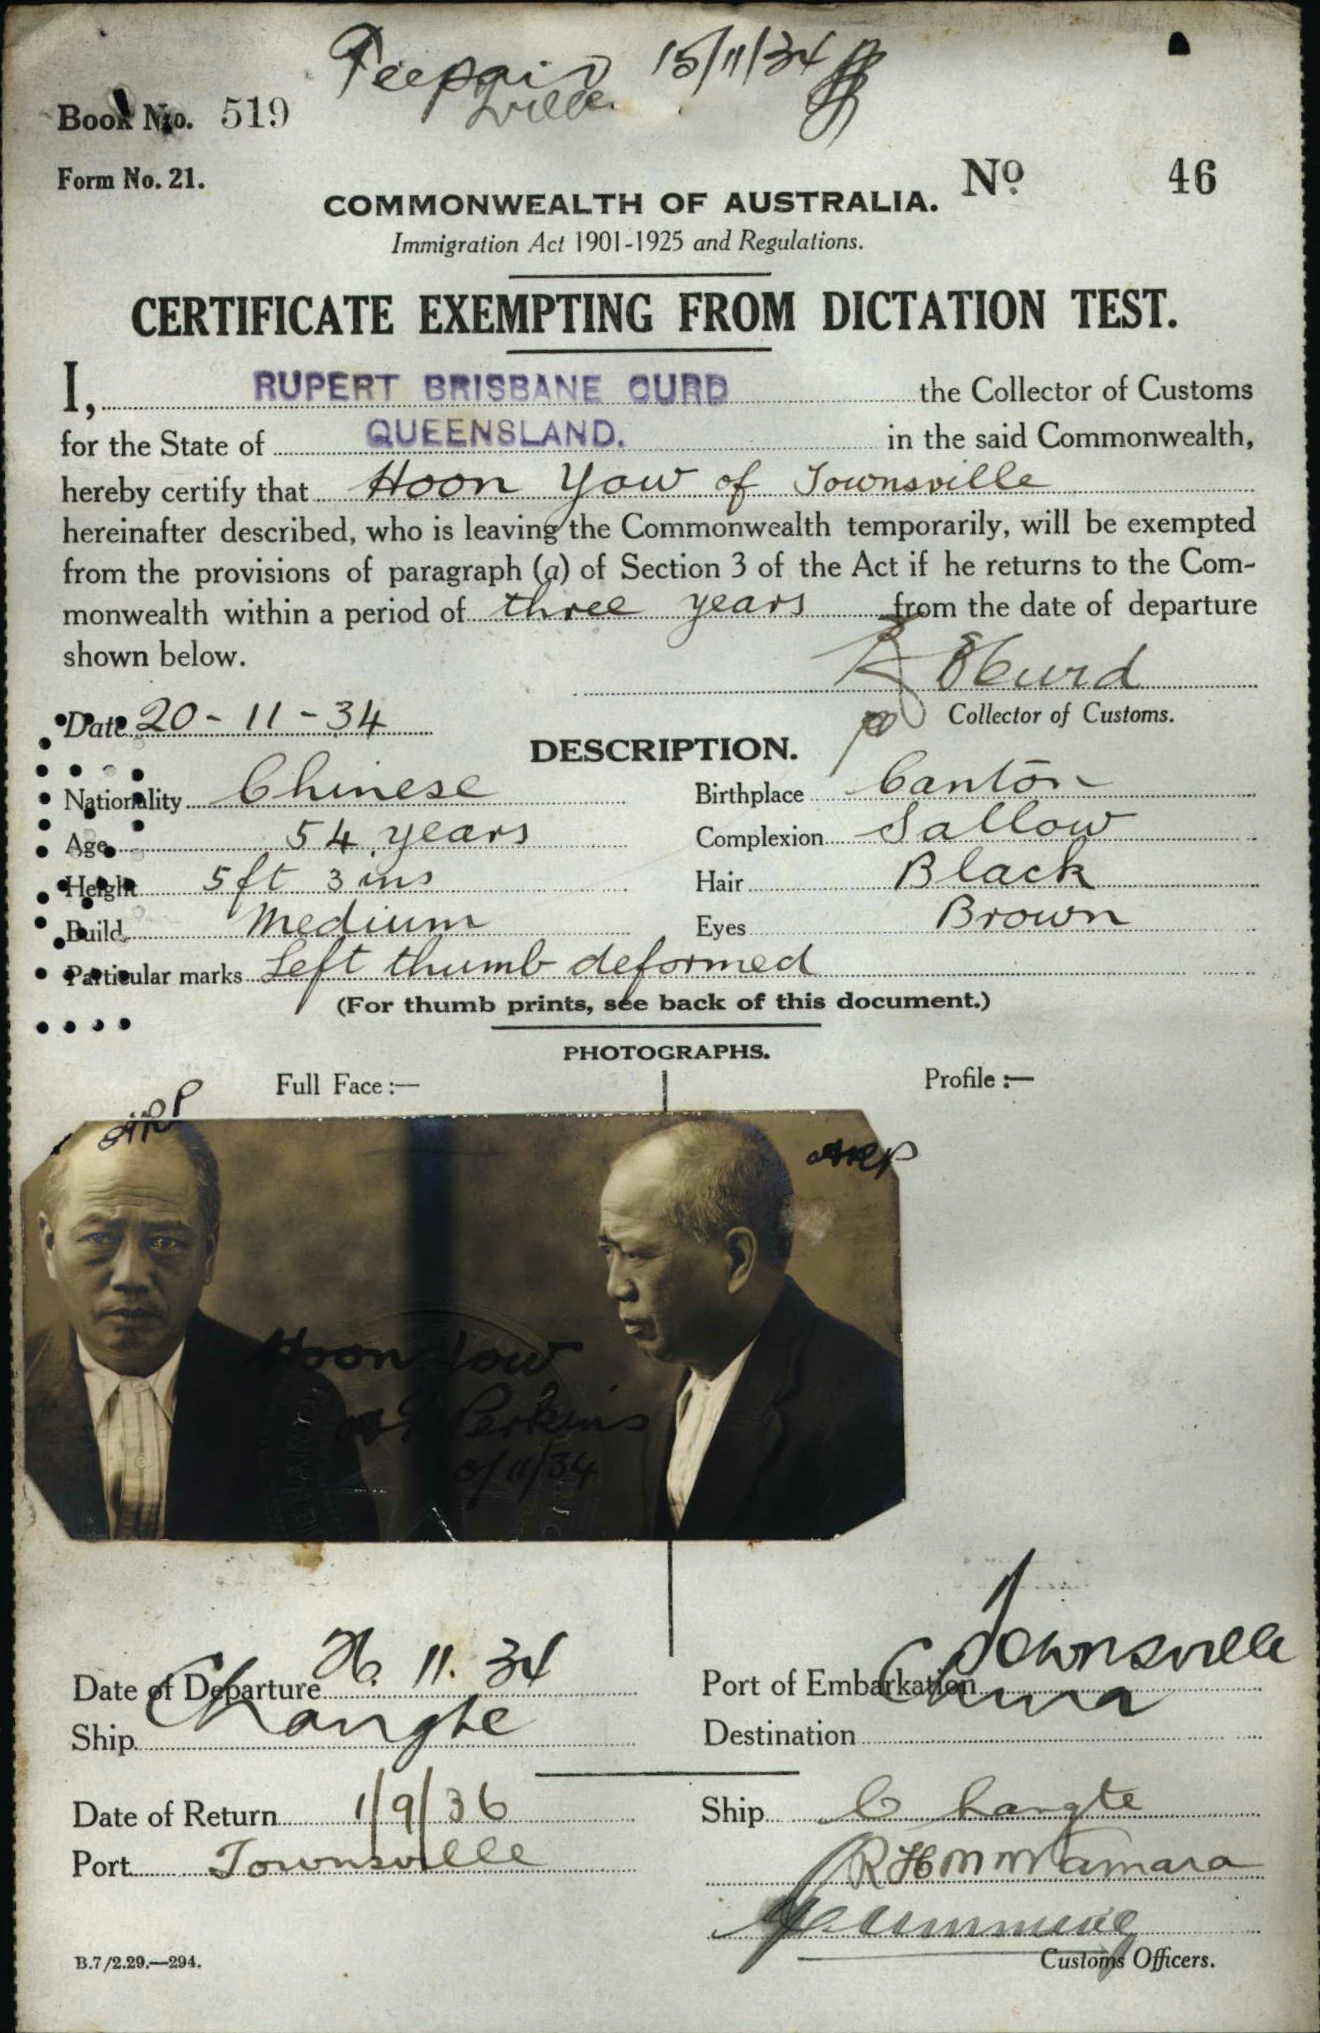 Fee paid 15/11/34
Tville
Book No. 519
Form No. 21.
No. 46
COMMONWEALTH OF AUSTRALIA.
Immigration Act 1901-1925 and Regulations.
CERTIFICATE EXEMPTING FROM DICTATION TEST.
I, RUPERT BRISBANE CURD the Collector of Customs
for the State of QUEENSLAND. in the said Commonwealth,
hereby certify that Hoon Yow of Townsville
hereinafter described, who is leaving the Commonwealth temporarily, will be exempted
from the provisions of paragraph (a) of Section 3 of the Act if he returns to the Com-
monwealth within a period of three years from the date of departure
shown below.
R B Curd
Date 20-11-34 Collector of Customs.
DESCRIPTION.
Nationality Chinese Birthplace Canton
Age 54 years Complexion Sallow
Height 5ft 3 ins Hair Black
Build Medium Eyes Brown
Particular marks Left thumb deformed
(For thumb prints, see back of this document.)
PHOTOGRAPHS.
Full Face :— Profile :—
Hoon Yow
Perkins
/11/34
Date of Departure 26. 11. 34 Port of Embarkation Townsville
Ship Changte Destination China
Date of Return 1/9/36 Ship Changte
Port Townsville R H McNamara
Customs Officers.
B.7/2.29.—294.